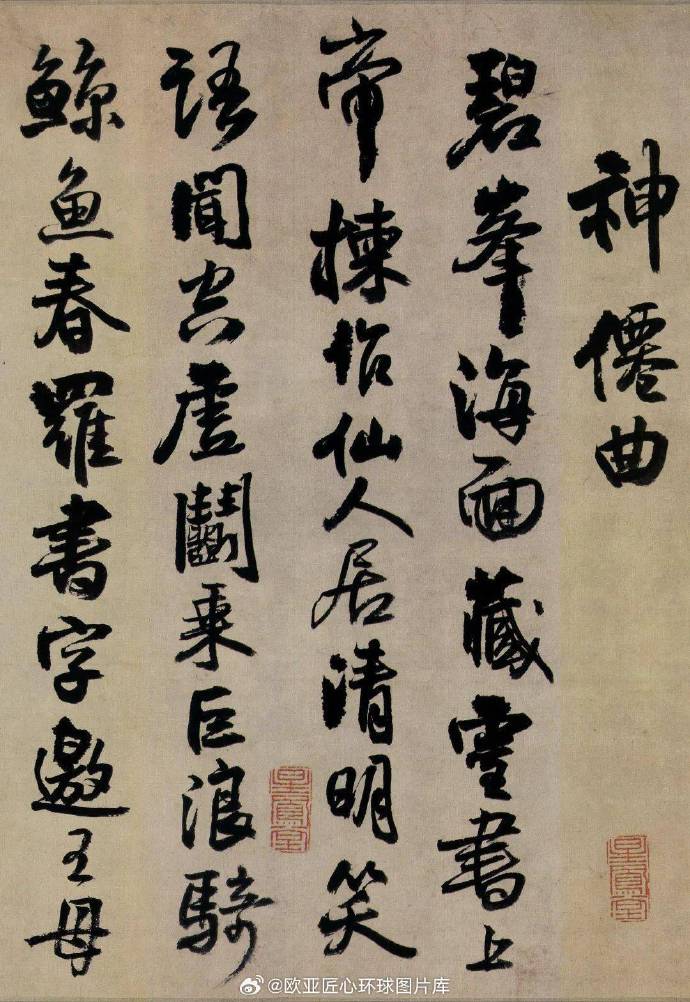 神僊曲
碧峯海面藏靈書上
帝揀作仙人居清明笑
語聞空虛鬭乘巨浪騎
鯨魚春羅書字邀王母
@欧亚匠心环球图片库